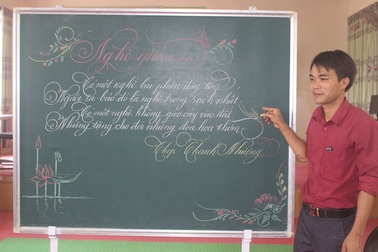 Nghề giáo
Có một nghề bụi phấn tay
Người ta bảo đó là nghề trong sạch nhất
Có một nghề không cây vào đất
Nhưng tặng cho đời những đóa hoa thơm
Thanh